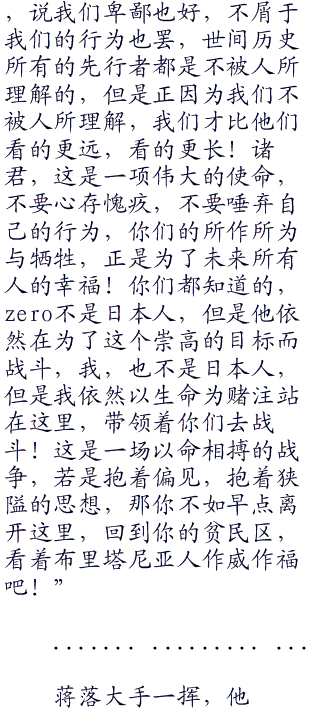 ，说我们卑鄙也好，不屑于
我们的行为也罢，世间历史
所有的先行者都是不被人所
理解的，但是正因为我们不
被人所理解，我们才比他们
看的更远，看的更长！诸
君，这是一项伟大的使命，
不要心存愧疚，不要唾弃自
己的行为，你们的所作所为
与牺牲，正是为了未来所有
人的幸福！你们都知道的，
zero不是日本人，但是他依
然在为了这个崇高的目标而
战斗，我，也不是日本人，
但是我依然以生命为赌注站
在这里，带领着你们去战
斗！这是一场以命相搏的战
争，若是抱着偏见，抱着狭
隘的思想，那你不如早点离
开这里，回到你的贫民区，
看着布里塔尼亚人作威作福
吧！”
....... ......... ...
蒋落大手一挥，他